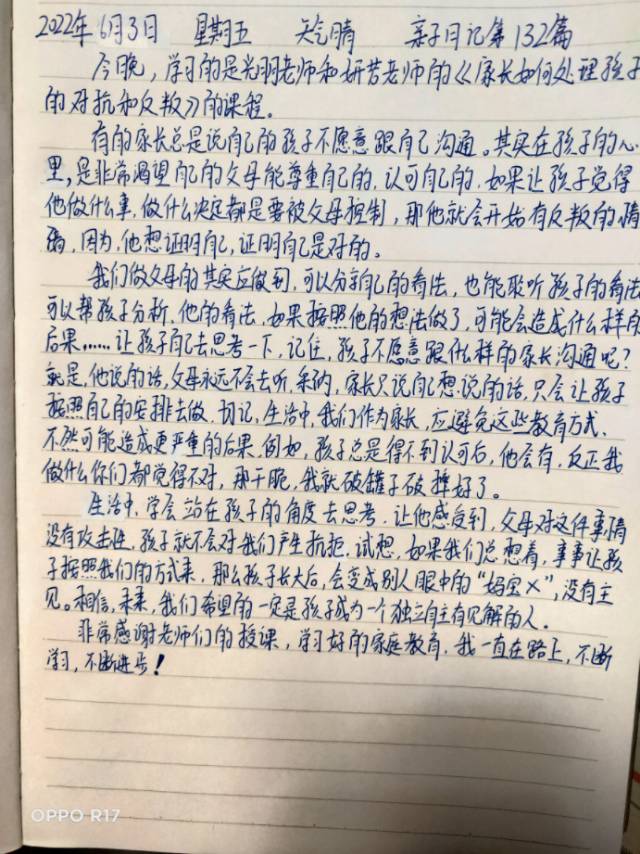 2022年6月3日 星期五 天气晴 亲子日记第132篇
今晚,学习的是光明老师和妍芳老师的《家长如何处理孩子
的对抗和反叛》的课程。
有的家长总是说自己的孩子不愿意跟自己沟通。其实在孩子的心
里,是非常渴望自己的父母能尊重自己的,认可自己的,如果让孩子觉得
他做什么事,做什么决定都是要被父母控制,那他就会开始有反叛的情
绪,因为,他想证明自己,证明自己是对的。
我们做父母的其实应做到,可以分享自己的看法,也能聆听孩子的看法
可以帮孩子分析,他的看法,如果按照他的想法做了,可能会造成什么样的
后果……让孩子自己去思考一下,记住,孩子不愿意跟什么样的家长沟通呢?
就是,他说的话,父母永远不会去听,采纳,家长只说自己想说的话,只会让孩子
按照自己的安排去做,切记,生活中,我们作为家长,应避免这些教育方式、
不然可能造成更严重的后果,例如,孩子总是得不到认可后,他会有,反正我
做什么你们都觉得不对,那干脆,我就破罐子破摔好了。
生活中,学会站在孩子的角度去思考,让他感受到,父母对这件事情
没有攻击性,孩子就不会对我们产生抗拒,试想,如果我们总想着,事事让孩
子按照我们的方式来,那么孩子长大后,会变成别人眼中的“妈宝×”,没有主
见。相信,未来,我们希望的一定是孩子成为一个独立自主有见解的人.
非常感谢老师们的授课,学习好的家庭教育,我一直在路上,不断
学习,不断进步!
OPPO R17